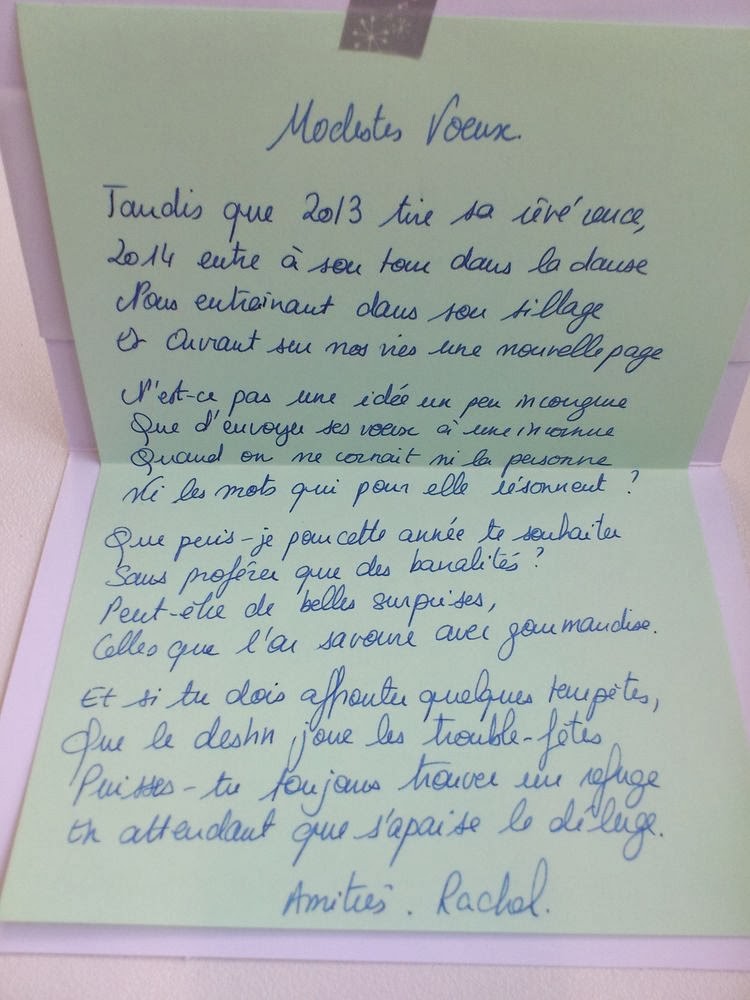 Modestes Voeux.
Tandis que 2013 tire sa révérence,
2014 entre à son tour dans la danse
Nous entraînant dans son sillage
Et Ouvrant sur nos vies une nouvelle page
N'est-ce pas une idée un peu incongrue
Que d'envoyer ses voeux à une inconnue
Quand on ne connait ni la personne
Ni les mots qui pour elle résonnent ?
Que puis-je pour cette année te souhaiter
Sans proférer que des banalités ?
Peut-être de belles surprises,
Celles que l'on savoure avec gourmandise.
Et si tu dois affronter quelques tempêtes,
Que le destin joue les trouble-fêtes
Puisses-tu toujours trouver un refuge
En attendant que s'apaise le déluge.
Amitiés. Rachel.